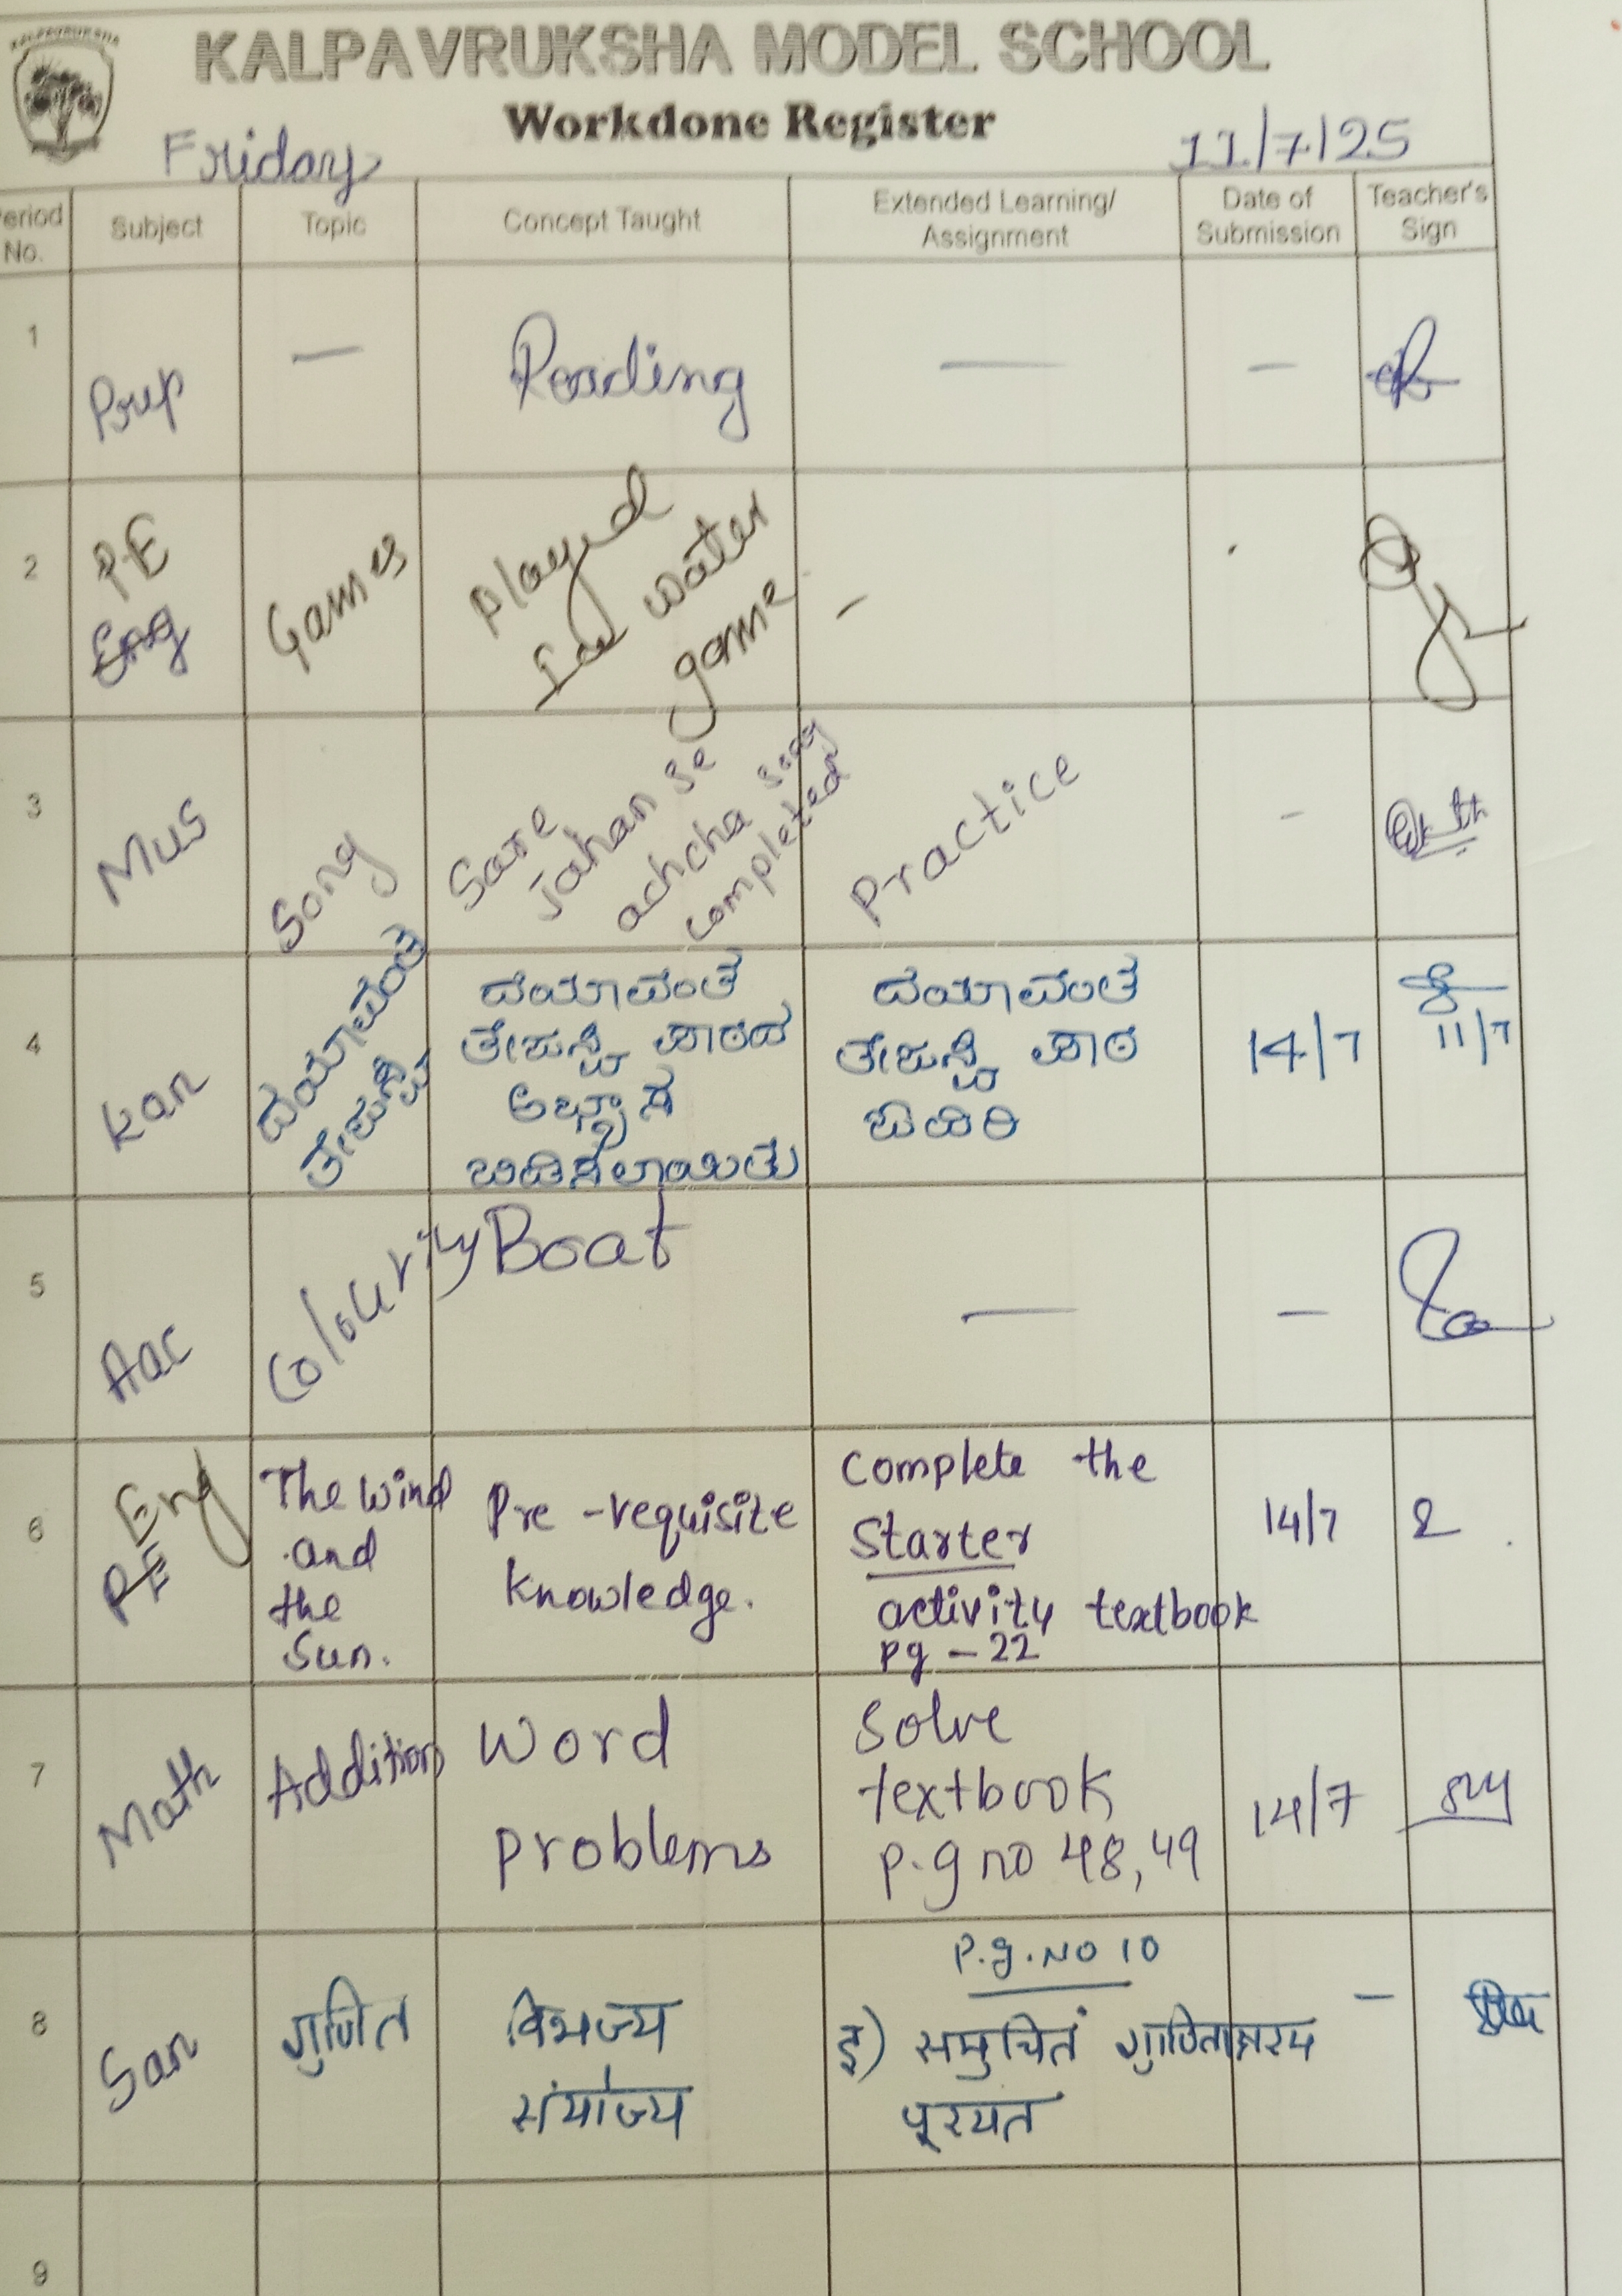 KALPAVRUKSHA
KALPAVRUKSHA MODEL SCHOOL
Workdone Register
Friday 11/7/25
Period No. Subject Topic Concept Taught Extended Learning/ Assignment Date of Submission Teacher's Sign
1 Prep — Reading — —
2 PE Eng Games Played
Ice water
game –
3 Mus Song Sare
Jahan se
achcha song
completed Practice –
4 Kan ದಯಾವಂತೆ
ತೇಜಸ್ವಿ
ದಯಾವಂತೆ
ತೇಜಸ್ವಿ ಪಾಠದ
ಅಭ್ಯಾಸ
ಬಿಡಿಸಲಾಯಿತು
ದಯಾವಂತೆ
ತೇಜಸ್ವಿ ಪಾಠ
14/7
11/7
5 Aac Colouring Boat — —
6 Eng PE
The wind
and
the
Sun.
Pre-requisite
knowledge.
Complete the
Starter
activity textbook
pg – 22
14/7
7 Math Addition
Word
problems
Solve
textbook
p.g no 48,49
14/7
8 San गुणित
विभज्य
संयोज्य
P.g.No 10
इ) समुचितं गुणिताक्षरम
पूरयत
–
9